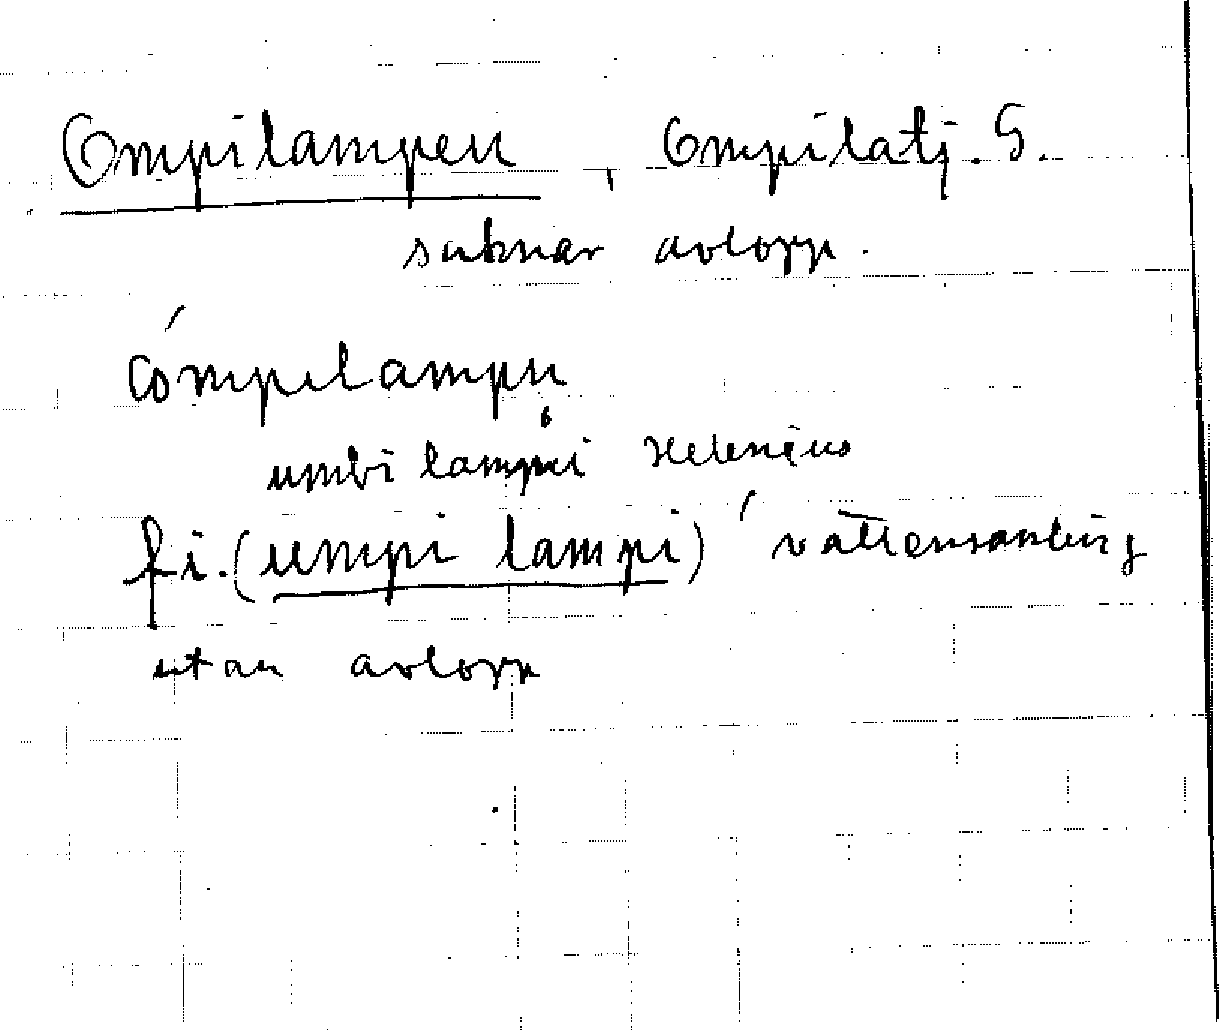 Ompilampen, Ompilatj. S.
saknar avlopp.
ómpilampu
umbi lampi Helenius
fi. (umpi lampi) 'vattensamling
utan avlopp